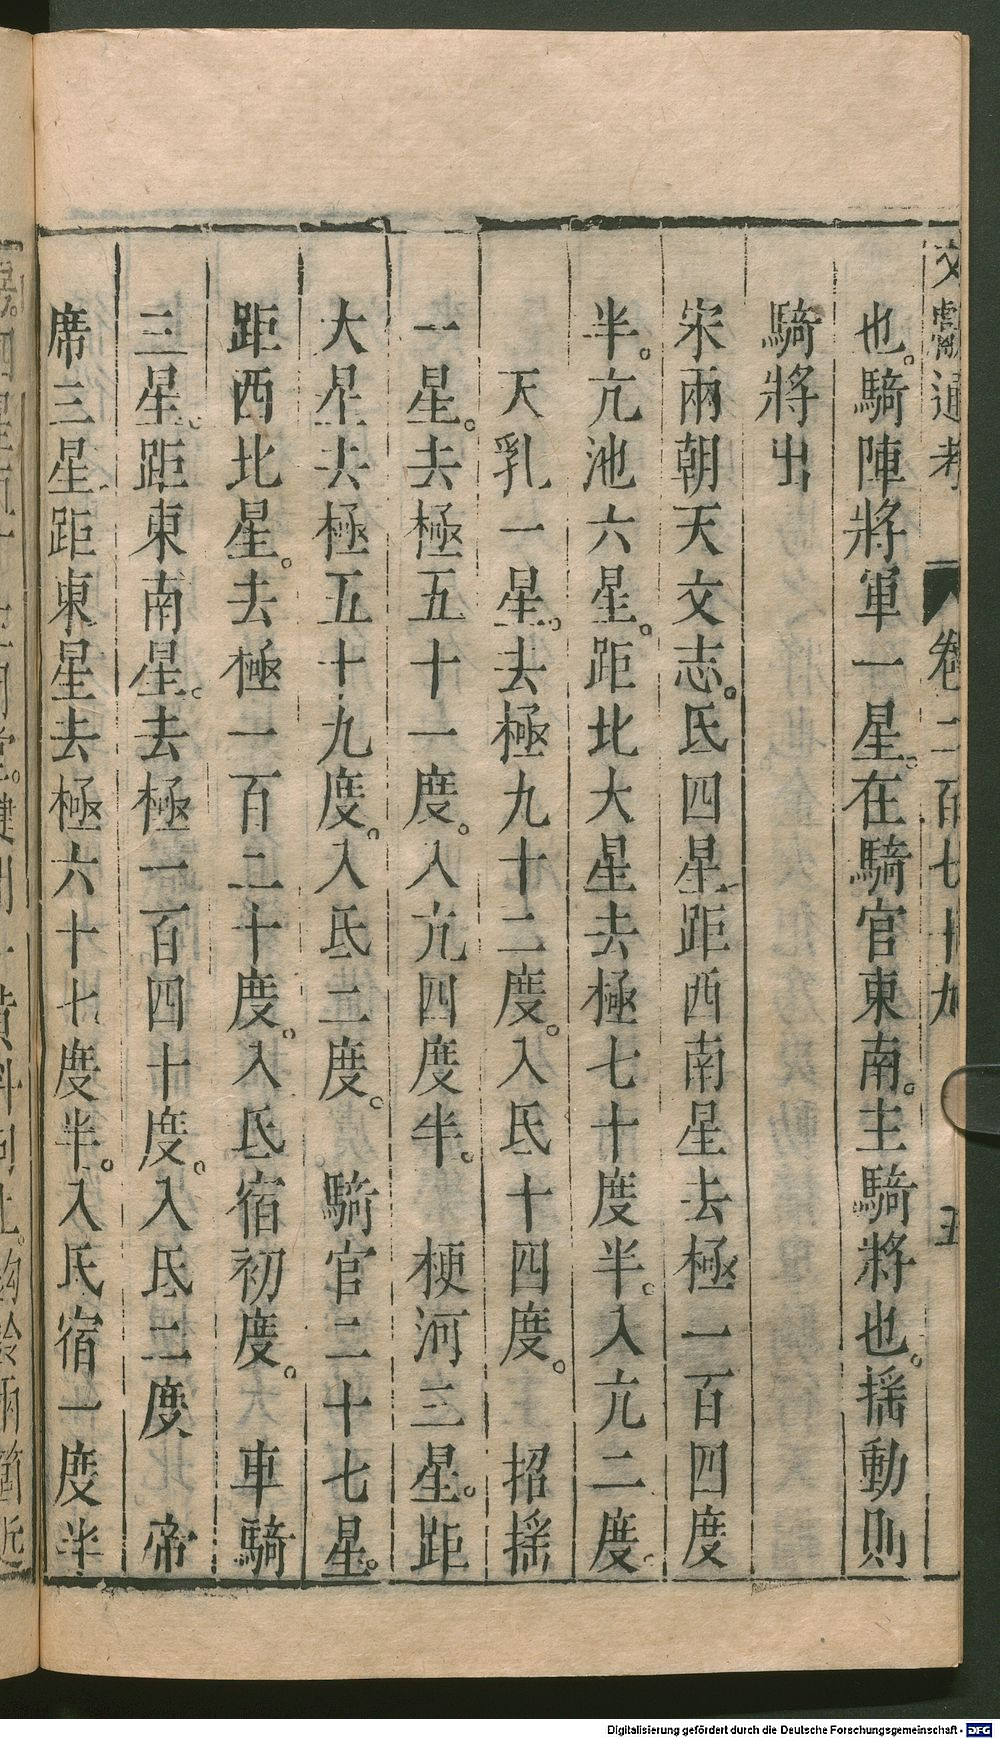 文獻通考 卷二百七十九 五
也騎陣將軍一星在騎官東南主騎將也揺動則
騎將出
宋兩朝天文志氐四星距西南星去極一百四度
半亢池六星距北大星去極七十度半入亢二度
天乳一星去極九十二度入氐十四度 招揺
一星去極五十一度入亢四度半 梗河三星距
大星去極五十九度入氐二度 騎官二十七星
距西北星去極一百二十度入氐宿初度 車騎
三星距東南星去極一百四十度入氐二度 帝
席三星距東星去極六十七度半入氐宿一度半
Digitalisierung gefördert durch die Deutsche Forschungsgemeinschaft - DFG